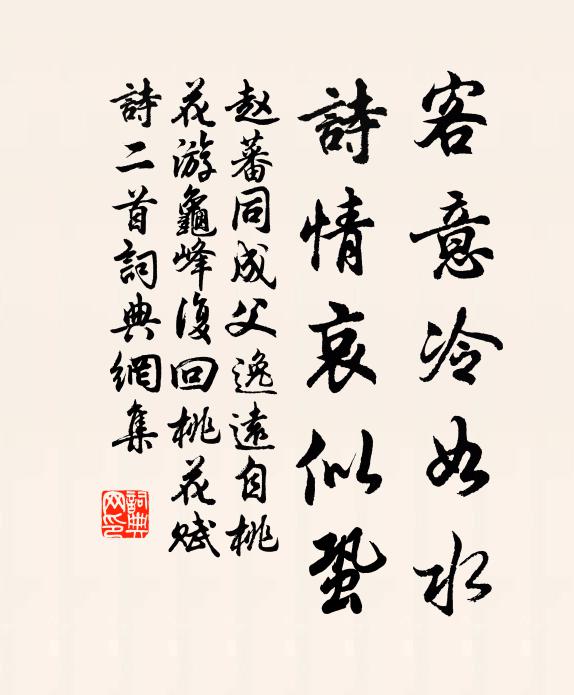 客意冷如水
詩情哀似蛩
赵蕃同成父逸遠自桃
花游龜峰復回桃花赋
詩二首詞典網集
詞典
网印